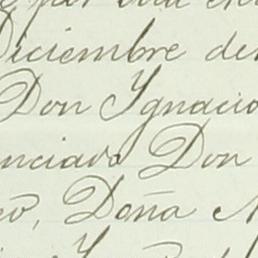 Diciembre de
Don Ygnacio
enciado Don
Doña